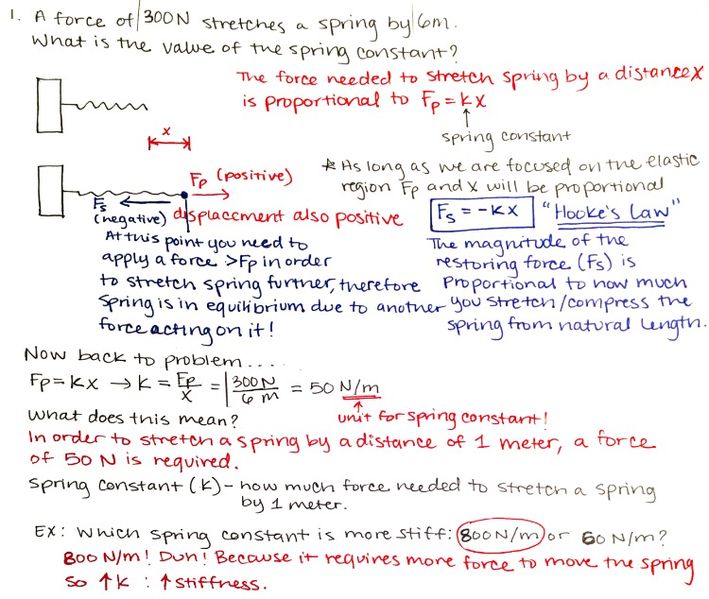 1. A force of 300N stretches a spring by 6m.
What is the value of the spring constant?
The force needed to stretch spring by a distance x
is proportional to Fp = kx
spring constant
x
Fp (positive)
* As long as we are focused on the elastic
region Fp and x will be proportional
Fs
(negative) displacement also positive
Fs = -kx "Hooke's Law"
At this point you need to
apply a force > Fp in order
to stretch spring further, therefore
spring is in equilibrium due to another
force acting on it!
The magnitude of the
restoring force (Fs) is
proportional to how much
you stretch/compress the
spring from natural length.
Now back to problem....
Fp = kx → k = Fp/x = 300N/6m = 50 N/m
What does this mean?
unit for spring constant!
In order to stretch a spring by a distance of 1 meter, a force
of 50 N is required.
Spring constant (k) - how much force needed to stretch a spring
by 1 meter.
Ex: Which spring constant is more stiff: 800N/m or 60 N/m?
800 N/m! Duh! Because it requires more force to move the spring
so ↑k : ↑stiffness.